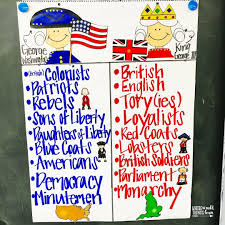 George
Washington
King
George III
(British) Colonists
Patriots
Rebels
Sons of Liberty
Daughters of Liberty
Blue Coats
Americans
Democracy
Minutemen
British
English
Tory(ies)
Loyalists
Red Coats
Lobsters
British Soldiers
Parliament
Monarchy